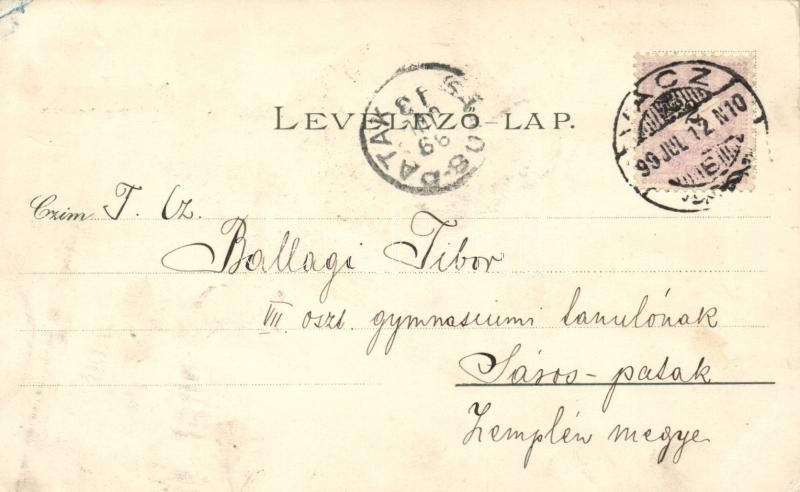 LEVELEZŐ-LAP.
SÁROS-PATAK
99 JUL 13
VÁCZ
99 JUL 12 N10
Czim T. Cz.
Ballagi Tibor
VII. oszt. gymnasiumi tanulónak
Sáros-patak
Zemplén megye